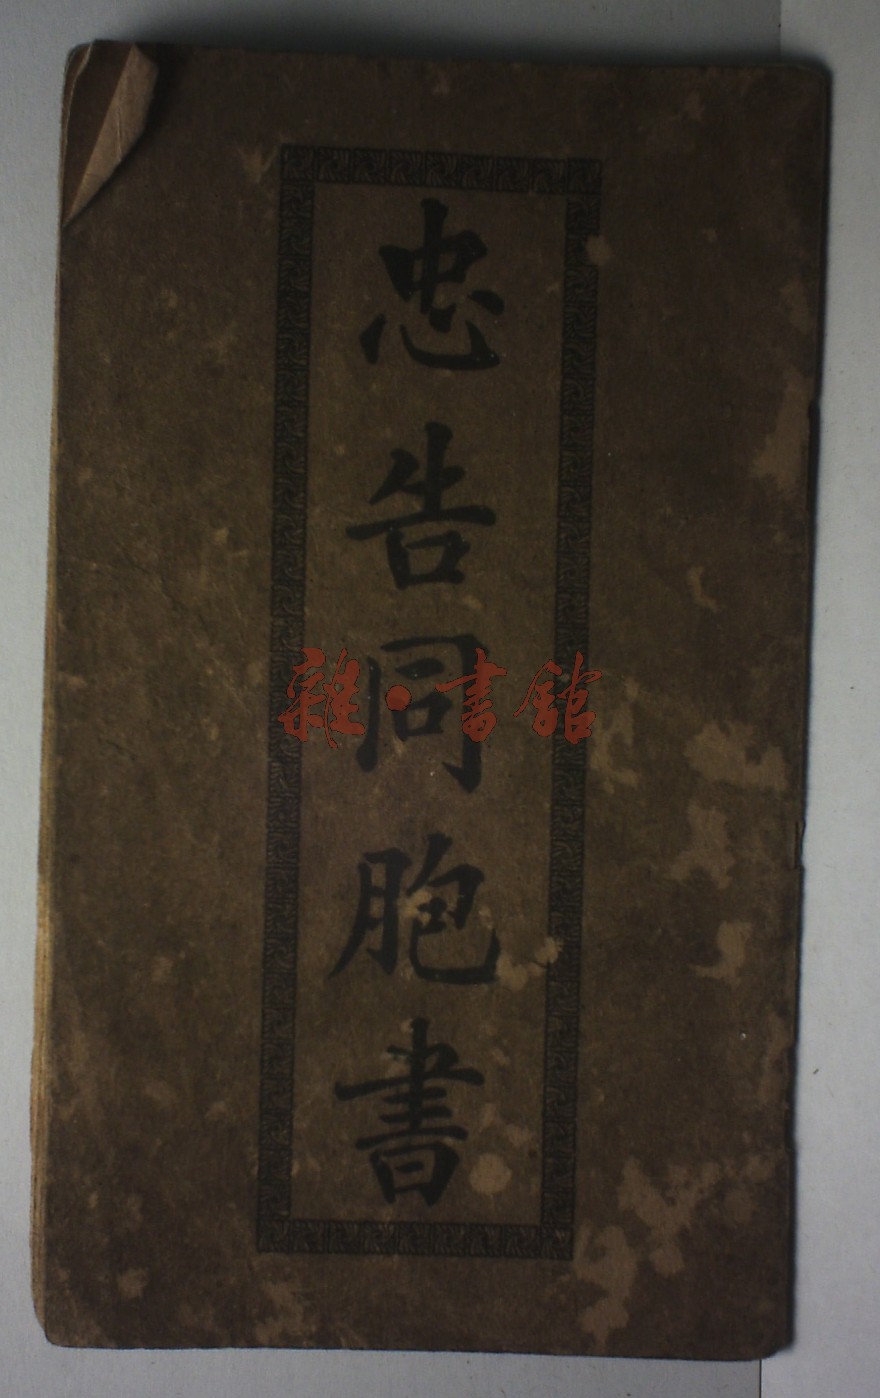 忠告同胞書
雜·書館